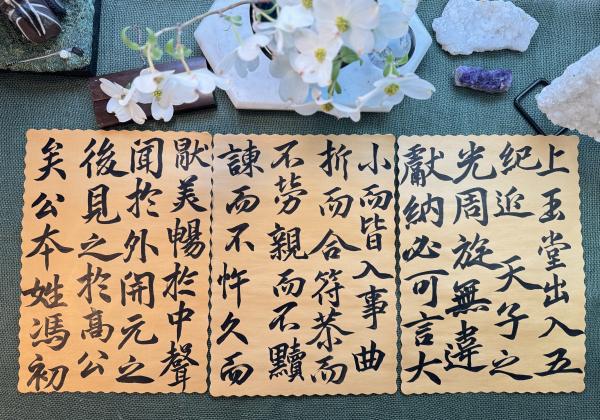 上玉堂出入五
紀近天子之
光周旋無違
獻納必可言大
小而皆入事曲
折而合符恭而
不勞親而不黷
諫而不忤久而
猒美暢於中聲
聞於外開元之
後見之於高公
矣公本姓馮初